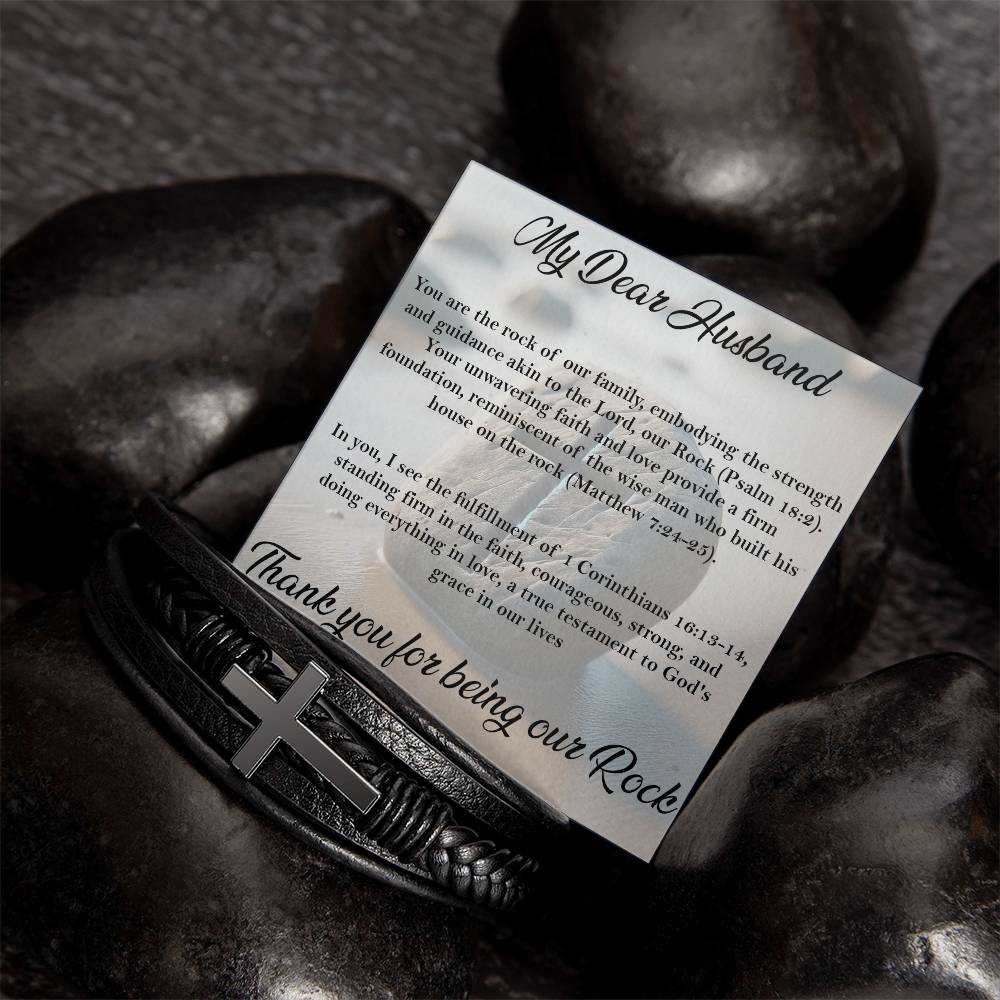 My Dear Husband
You are the rock of our family, embodying the strength
and guidance akin to the Lord, our Rock (Psalm 18:2).
Your unwavering faith and love provide a firm
foundation, reminiscent of the wise man who built his
house on the rock (Matthew 7:24-25).
In you, I see the fulfillment of 1 Corinthians 16:13-14,
standing firm in the faith, courageous, strong, and
doing everything in love, a true testament to God's
grace in our lives
Thank you for being our Rock